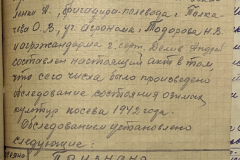 бригадира-полевода т.
О.В., уч. агронома т. Тодорова Н.В.
и
составлен настоящий акт в том,
что сего числа было произведено
обследование состояния озимых
культур посева 1942 года.
Обследованием установлено
следующее: